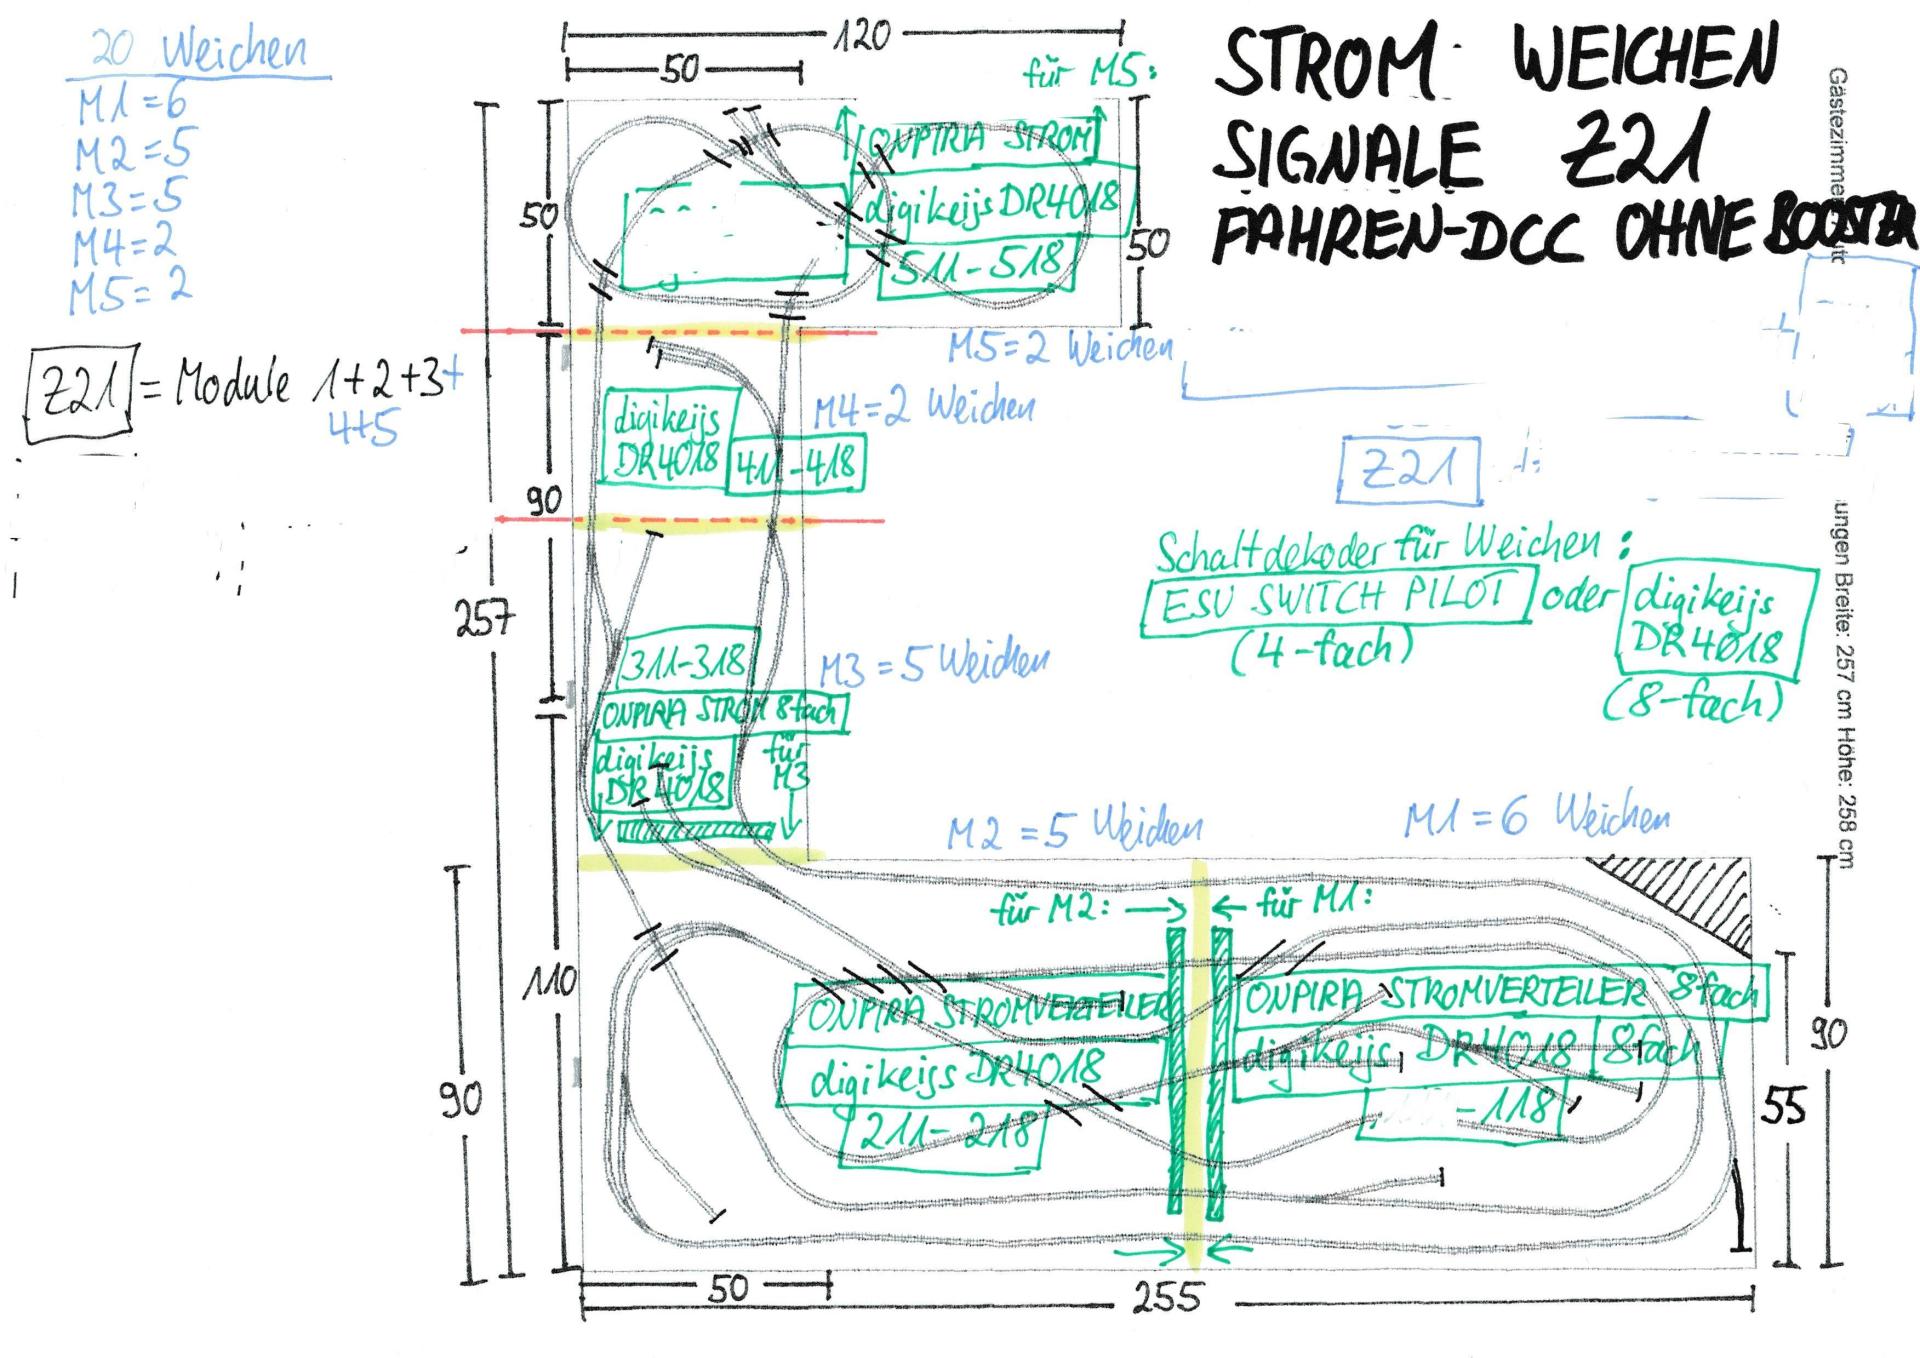 20 Weichen
M1=6
M2=5
M3=5
M4=2
M5=2
Z21 = Module 1+2+3+
4+5
120
50
für M5:
STROM WEICHEN
SIGNALE Z21
FAHREN-DCC OHNE BOOSTER
ONPIRA STROM
digikeijs DR4018
511-518
50
50
M5=2 Weichen
M4=2 Weichen
digikeijs
DR4018
411-418
90
Z21
Schaltdekoder für Weichen:
ESU SWITCH PILOT oder digikeijs
DR4018
(4-fach)
(8-fach)
257
311-318
M3=5 Weichen
ONPIRA STROM 8fach
digikeijs
DR4018
für
M3
M2=5 Weichen
M1=6 Weichen
für M2:
für M1:
110
90
ONPIRA STROMVERTEILER
digikeijs DR4018
211-218
ONPIRA STROMVERTEILER 8fach
digikeijs DR4018 8fach
-118
90
55
50
255
ungen Breite: 257 cm Höhe: 258 cm